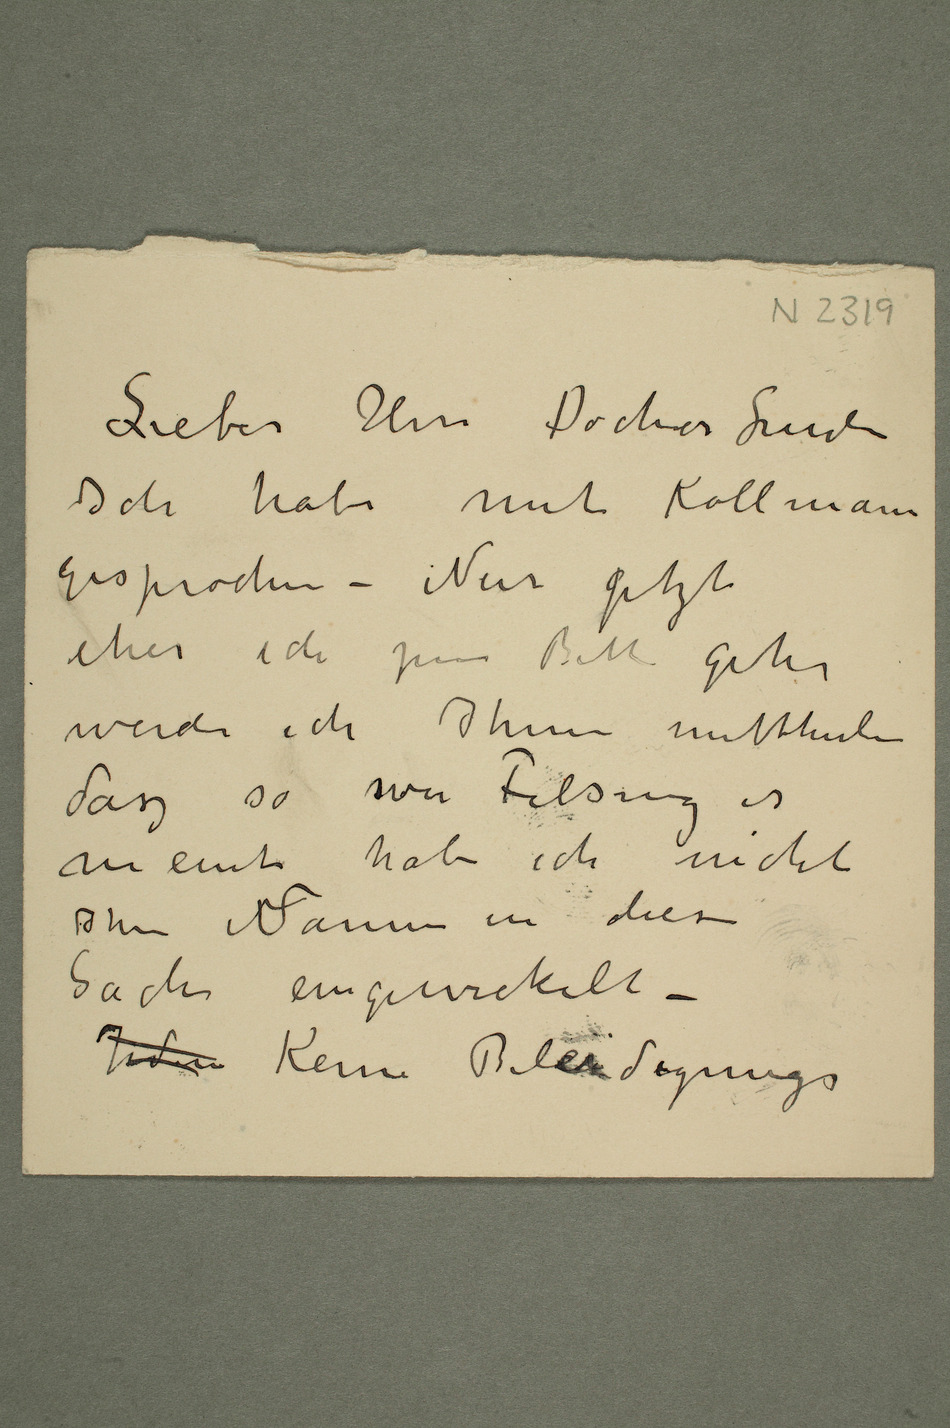 N 2319
Lieber Herr Doctor Linde
Ich habe mit Kollmann
gesprochen – Nur getzt
eher ich zum Bett geher
werde ich Ihnen mittheilen
dasz so wie Felsing es
meint habe ich nicht
Ihr Namen in diese
Sache eingewickelt –
Keine Beleidigungs